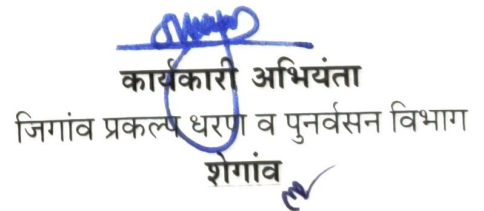 कार्यकारी अभियंता
जिगांव प्रकल्प धरण व पुनर्वसन विभाग
शेगांव